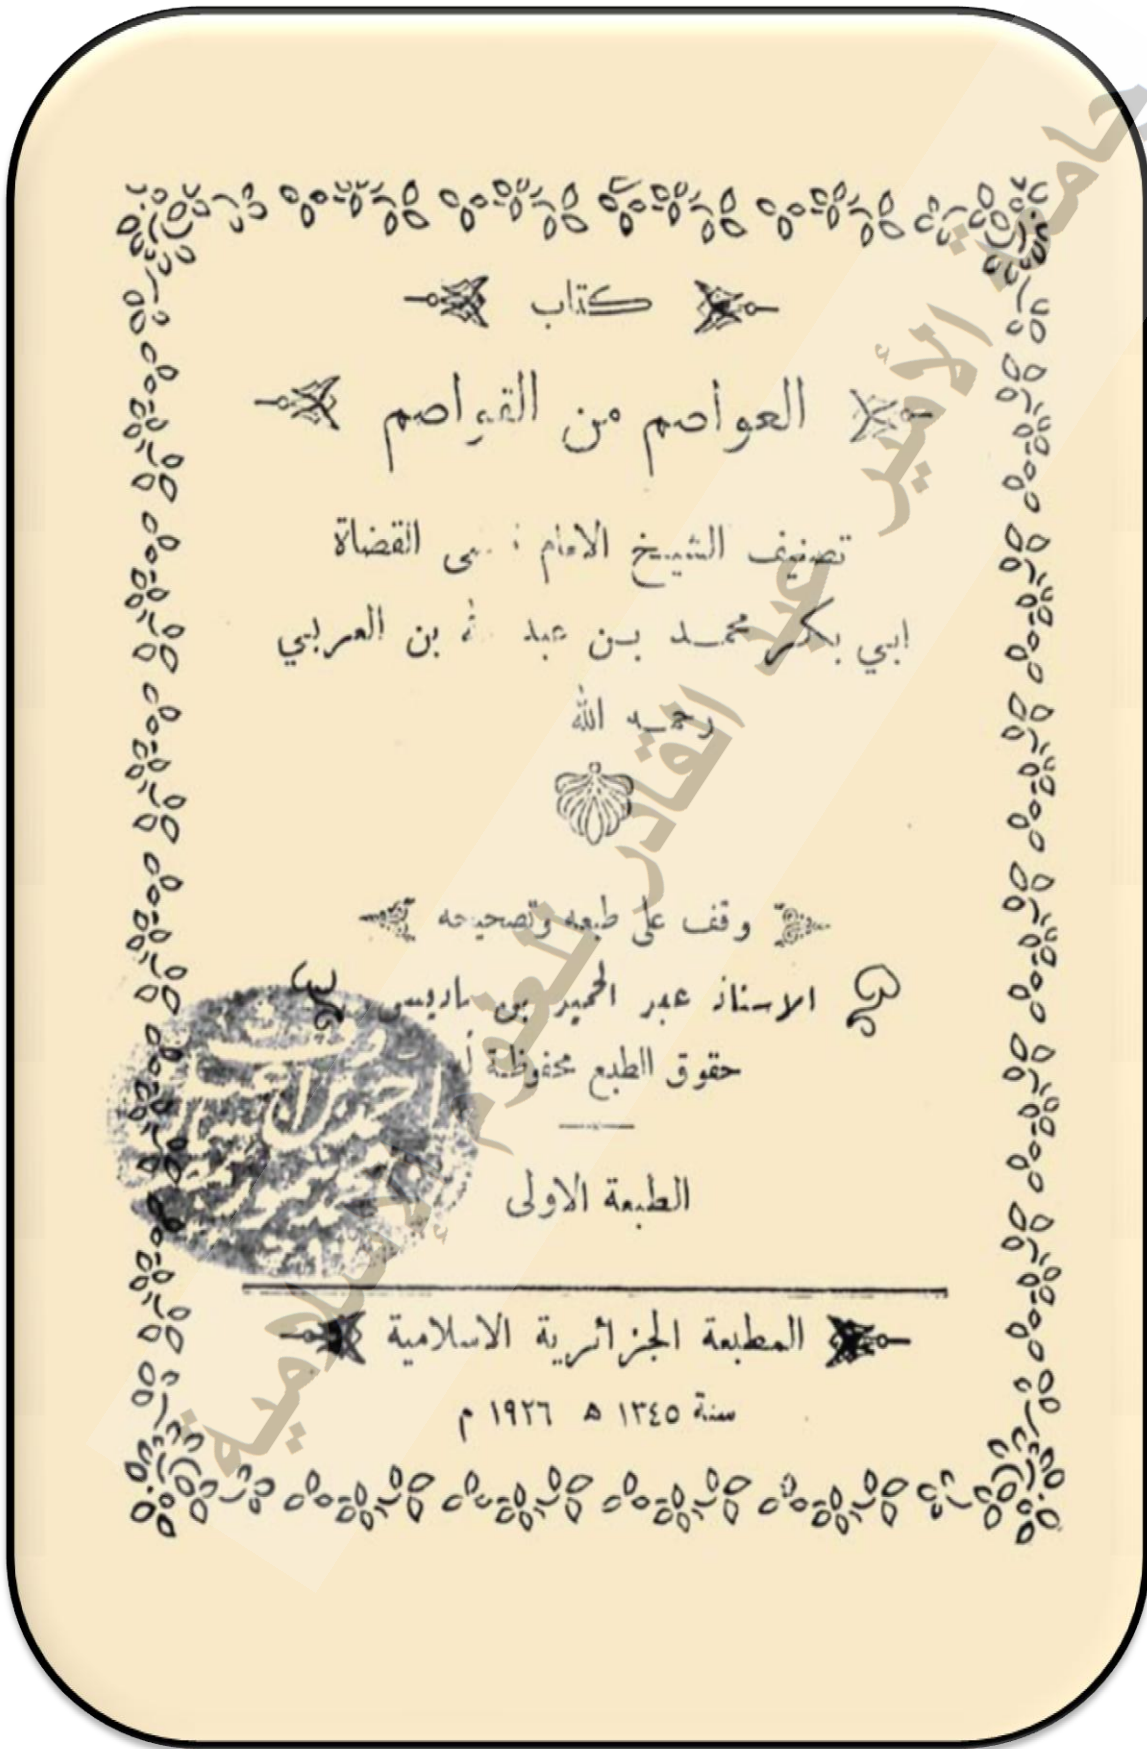 كتاب
العواصم من القواصم
تصنيف الشيخ الامام القضاة
ابي بكر محمد بن عبد بن العربي
رحمه الله
وقف على طبعه وتصحيحه
الاستاذ عبد الحميد بن باديس
حقوق الطبع محفوظة
الطبعة الاولى
المطبعة الجزائرية الاسلامية
سنة ١٣٤٥ ه ١٩٢٦ م
جامعة الأمير عبد القادر للعلوم الإسلامية